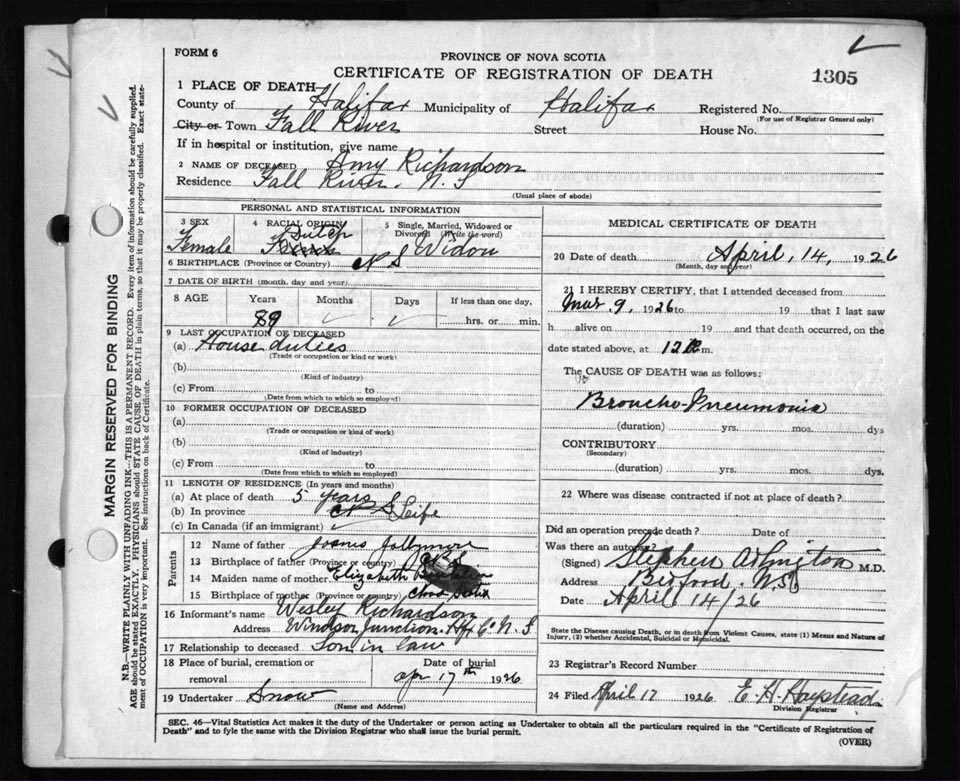 FORM 6
PROVINCE OF NOVA SCOTIA
CERTIFICATE OF REGISTRATION OF DEATH
1305
1 PLACE OF DEATH—
County of Halifax Municipality of Halifax Registered No.
(For use of Registrar General only)
City or Town Fall River Street House No.
If in hospital or institution, give name
2 NAME OF DECEASED Amy Richardson
Residence Fall River. N. S
(Usual place of abode)
PERSONAL AND STATISTICAL INFORMATION
3 SEX Female
4 RACIAL ORIGIN Dutch
5 Single, Married, Widowed or Divorced (Write the word) Widow
6 BIRTHPLACE (Province or Country) N S
7 DATE OF BIRTH (month, day and year)
8 AGE Years Months Days If less than one day,
89 hrs. or min.
9 LAST OCCUPATION OF DECEASED
(a) House duties
(Trade or occupation or kind or work)
(b)
(Kind of industry)
(c) From to
(Date from which to which so employed)
10 FORMER OCCUPATION OF DECEASED
(a)
(Trade or occupation or kind of work)
(b)
(Kind of industry)
(c) From to
(Date from which to which so employed)
11 LENGTH OF RESIDENCE (In years and months)
(a) At place of death 5 years
(b) In province N S Life
(c) In Canada (if an immigrant)
Parents
12 Name of father Jollymore
13 Birthplace of father (Province or country)
14 Maiden name of mother Elizabeth
15 Birthplace of mother (Province or country) Scotia
16 Informant's name Wesley Richardson
Address Windsor Junction. Hfx Co N. S
17 Relationship to deceased Son in law
18 Place of burial, cremation or removal
Date of burial
Apr 17th 1926
19 Undertaker Snow
(Name and Address)
MEDICAL CERTIFICATE OF DEATH
20 Date of death April, 14, 1926
(Month, day and year)
21 I HEREBY CERTIFY, that I attended deceased from
Mar. 9, 1926 to 19 that I last saw
h alive on 19 and that death occurred, on the
date stated above, at 12 m.
The CAUSE OF DEATH was as follows:
Broncho-Pneumonia
(duration) yrs. mos. dys
CONTRIBUTORY
(Secondary)
(duration) yrs. mos. dys.
22 Where was disease contracted if not at place of death?
Did an operation precede death? Date of
Was there an autopsy?
(Signed) Stephen M.D.
Address N.S
Date April 14/26
State the Disease causing Death, or in death from Violent Causes, state (1) Means and Nature of
Injury, (2) whether Accidental, Suicidal or Homicidal.
23 Registrar's Record Number
24 Filed April 17 1926 E. H. Haystead
Division Registrar
SEC. 46—Vital Statistics Act makes it the duty of the Undertaker or person acting as Undertaker to obtain all the particulars required in the "Certificate of Registration of
Death" and to fyle the same with the Division Registrar who shall issue the burial permit.
(OVER)
MARGIN RESERVED FOR BINDING
N.B.—WRITE PLAINLY WITH UNFADING INK—THIS IS A PERMANENT RECORD. Every item of information should be carefully supplied.
AGE should be stated EXACTLY. PHYSICIANS should STATE CAUSE OF DEATH in plain terms, so that it may be properly classified. Exact state-
ment of OCCUPATION is very important. See instructions on back of Certificate.